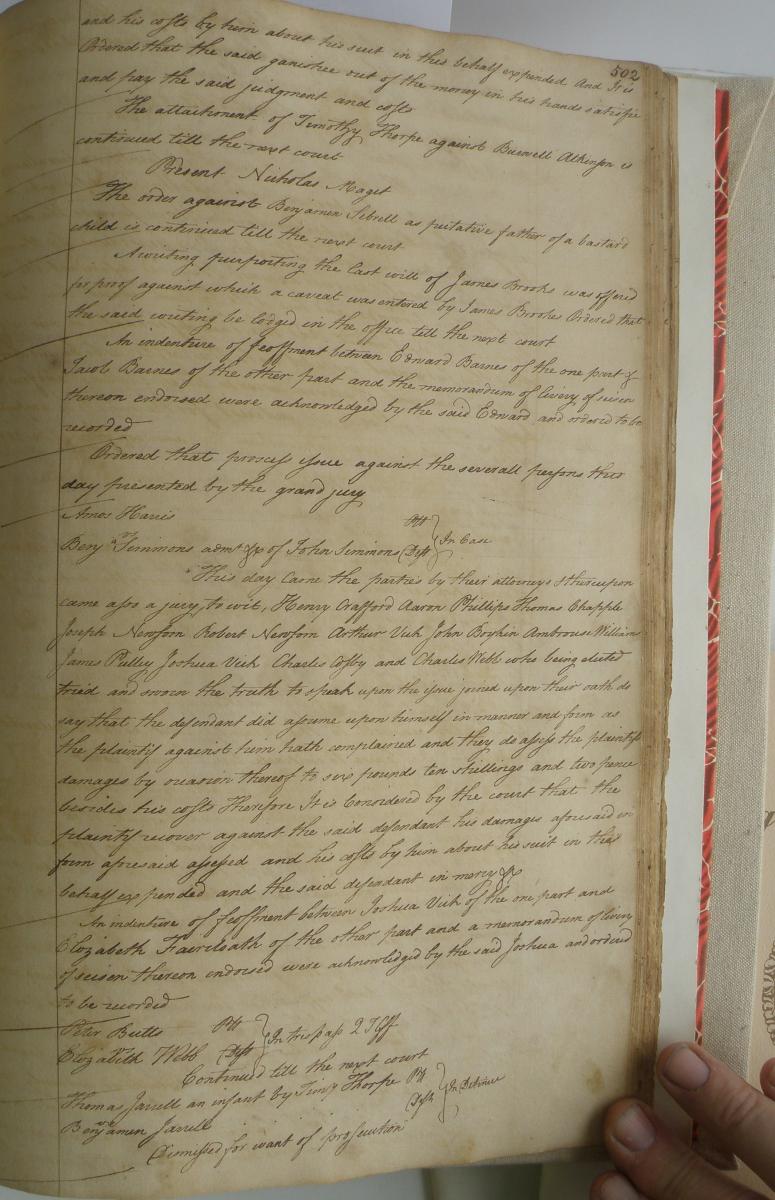 502
and his costs by him about his suit in this behalf expended And It is
Ordered that the said garnishee out of the money in his hands satisfie
and pay the said judgment and costs
The attachment of Timothy Thorpe against Burwell Atkinson is
continued till the next court
Present Nicholas Maget
The order against Benjamen Sebrell as putative father of a bastard
child is continued till the next court
A writing purporting the last will of James Brooks was offered
for proof against which a caveat was entered by James Brookes Ordered that
the said writing be lodged in the office till the next court
An indenture of feoffment between Edward Barnes of the one part &
Jacob Barnes of the other part and the memorandum of livery of seisen
thereon endorsed were acknowledged by the said Edward and ordered to be
recorded
Ordered that process issue against the severall persons this
day presented by the grand jury
Amos Harris Plt
vs } In Case
Benj Simmons admr &c of John Simmons Deft
This day came the parties by their attorneys & thereupon
came also a jury, to wit, Henry Crafford Aaron Phillips Thomas Chapple
Joseph Newsom Robert Newsom Arthur Vick John Boykin Ambrouse William
James Pulley Joshua Vick Charles Cosby and Charles Webb who being elected
tried and sworn the truth to speak upon the issue joined upon their oath do
say that the defendant did assume upon himself in manner and form as
the plaintif against him hath complained and they do assess the plaintifs
damages by occasion thereof to six pounds ten shillings and two pence
besides his costs Therefore It is Considered by the court that the
plaintif recover against the said defendant his damages aforesaid in
form aforesaid assessed and his costs by him about his suit in this
behalf expended and the said defendant in mercy &c
An indenture of feoffment between Joshua Vick of the one part and
Elizabeth Faircloath of the other part and a memorandum of livery
of seisen thereon endorsed were acknowledged by the said Joshua and ordered
to be recorded
Peter Butts Plt
vs } In trespass
Elizabeth Webb Deft
Continued till the next court
Thomas Jarrell an infant by Timo Thorpe Plt
vs } In Detinue
Benjamen Jarrell Deft
Dismissed for want of prosecution